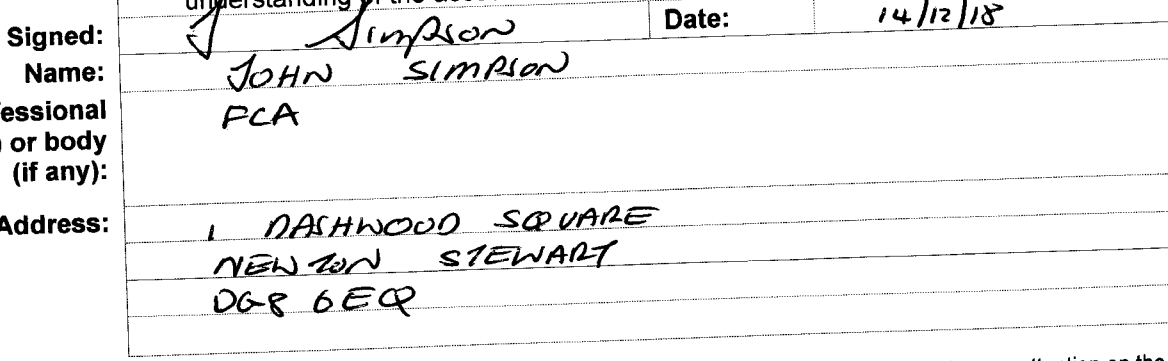 understanding of the
Signed: J Simpson Date: 14/12/18
Name: JOHN SIMPSON
essional FCA
or body
(if any):
Address: 1 DASHWOOD SQUARE
NEWTON STEWART
DG8 6EQ
on the